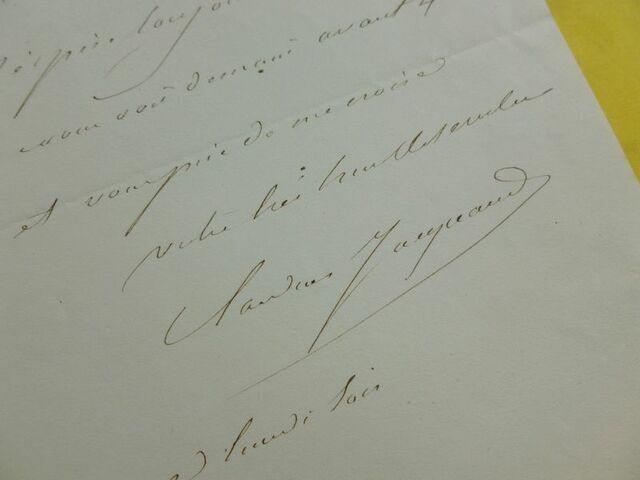 j'espère toujours
vous voir demain avant 4
et vous prie de me croire
votre très humble serviteur
Claudius Jacquand
lundi soir